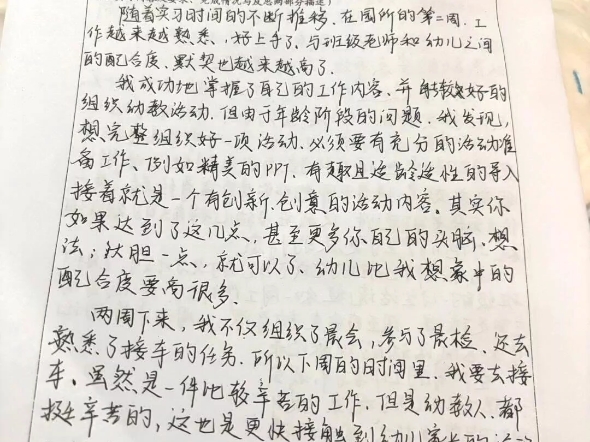 完成情况与反思两部分描述）
随着实习时间的不断推移，在园所的第二周，工
作越来越熟悉，好上手了、与班级老师和幼儿之间
的配合度、默契也越来越高了.
我成功地掌握了自己的工作内容，并能较好的
组织幼教活动.但由于年龄阶段的问题.我发现，
想完整组织好一项活动.必须要有充分的活动准
备工作、例如精美的PPT、有趣且适龄适性的导入
接着就是一个有创新、创意的活动内容。其实你
如果达到了这几点，甚至更多你自己的头脑、想
法；大胆一点，就可以了、幼儿比我想象中的
配合度要高很多.
两周下来，我不仅组织了晨会，参与了晨检、还去
熟悉了接车的任务.所以下周的时间里，我要去接
车、虽然是一件比较辛苦的工作.但是幼教人、都
挺辛苦的，这也是更快接触到幼儿家长的